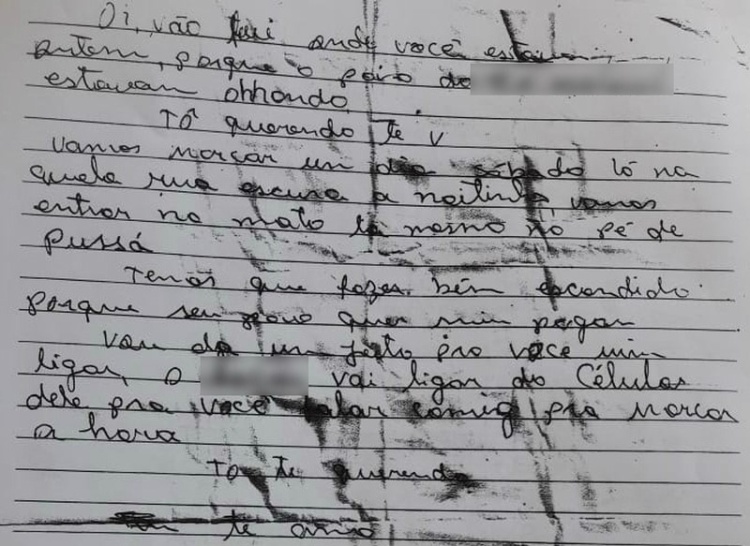 Oi, vão fui onde você estava
ontem, porque o povo do
estavan ohhando
Tô querendo te v
Vamos marcar um dia sábado lá na
quela rua escura a noitinha, vamos
entrar no mato la mesmo no pé de
pussá
Temos que fazer bem escondido
porque seu povo quer mim pegar
Vou da um jeito pro você mim
ligar, o vai ligar do Célular
dele pra você falar comig pra marcar
a hora
To te querendo
te amo